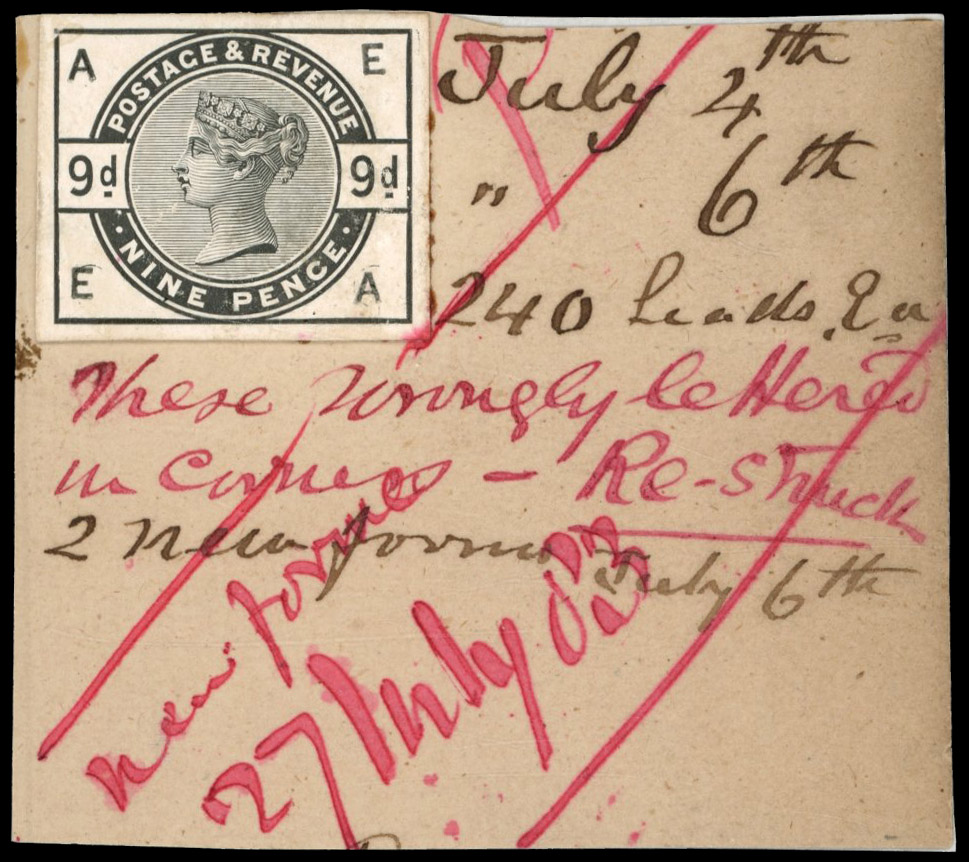 A E
POSTAGE & REVENUE
9d 9d
NINE PENCE
E A
July 4th
" 6th
240 Leads. Ea
These wrongly lettered
in corners - Re-struck
2 new forms July 6th
new formes
27 July 83